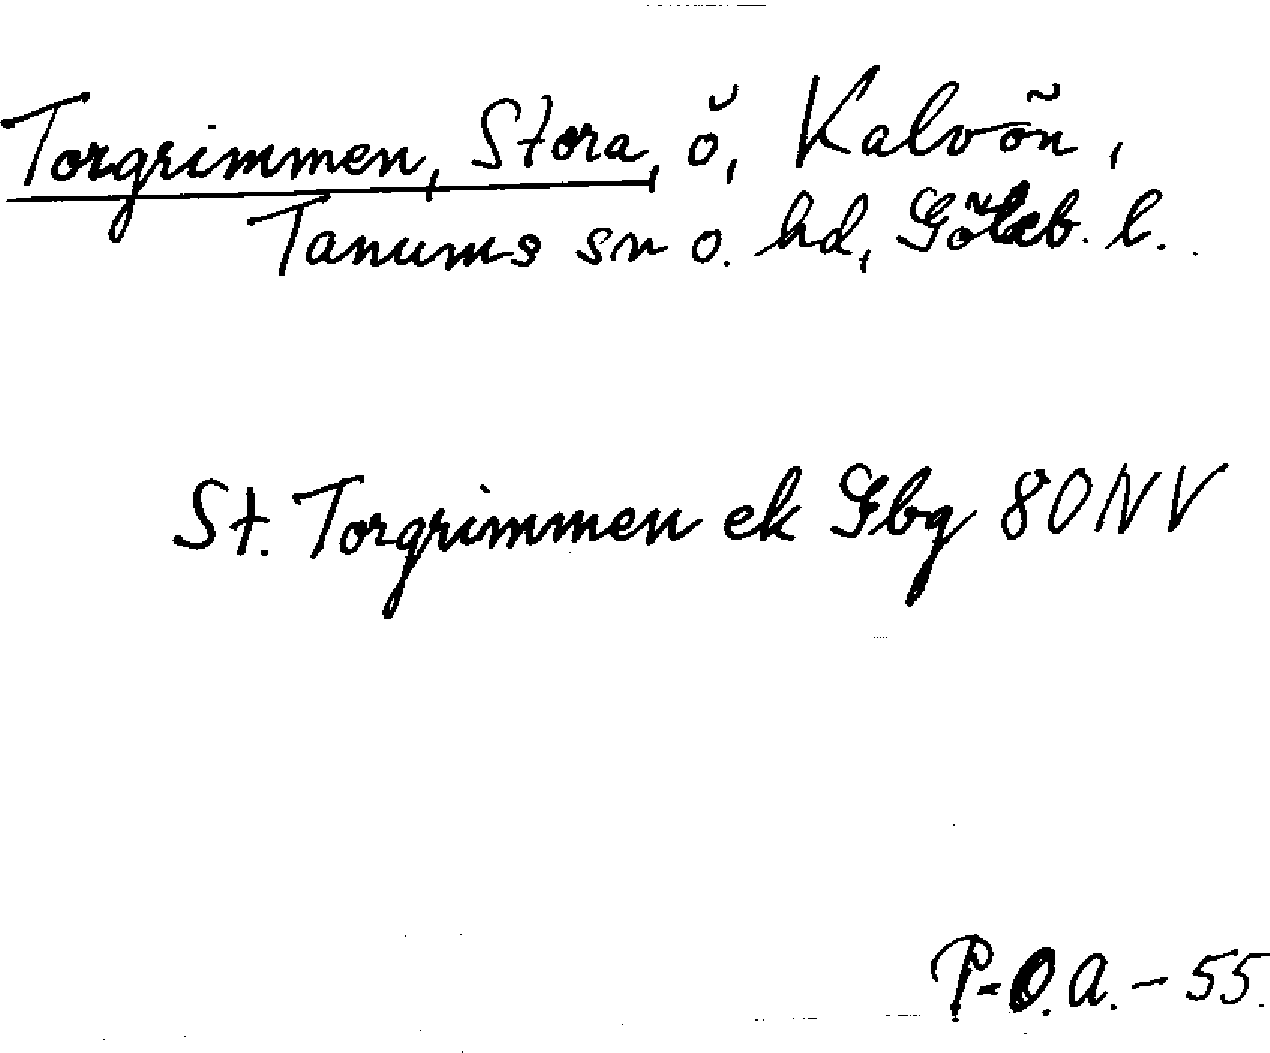 Torgrimmen, Stora, ö, Kalvön,
Tanums sn o. hd, Göteb. l.
St. Torgrimmen ek Gbg 80NV
P-O.A.-55.